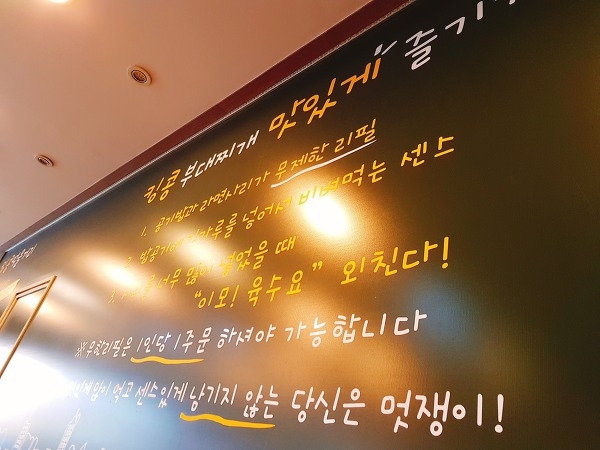 킹콩 부대찌개 맛있게 즐기
1. 공기밥과 라면사리가 무제한 리필
2. 밥공기에 넣어서 비벼먹는 센스
3. 너무 많이 넣었을 때
"이모! 육수요" 외친다!
※ 무한리필은 1인당 1주문 하셔야 가능합니다
없이 먹고 센스있게 남기지 않는 당신은 멋쟁이!